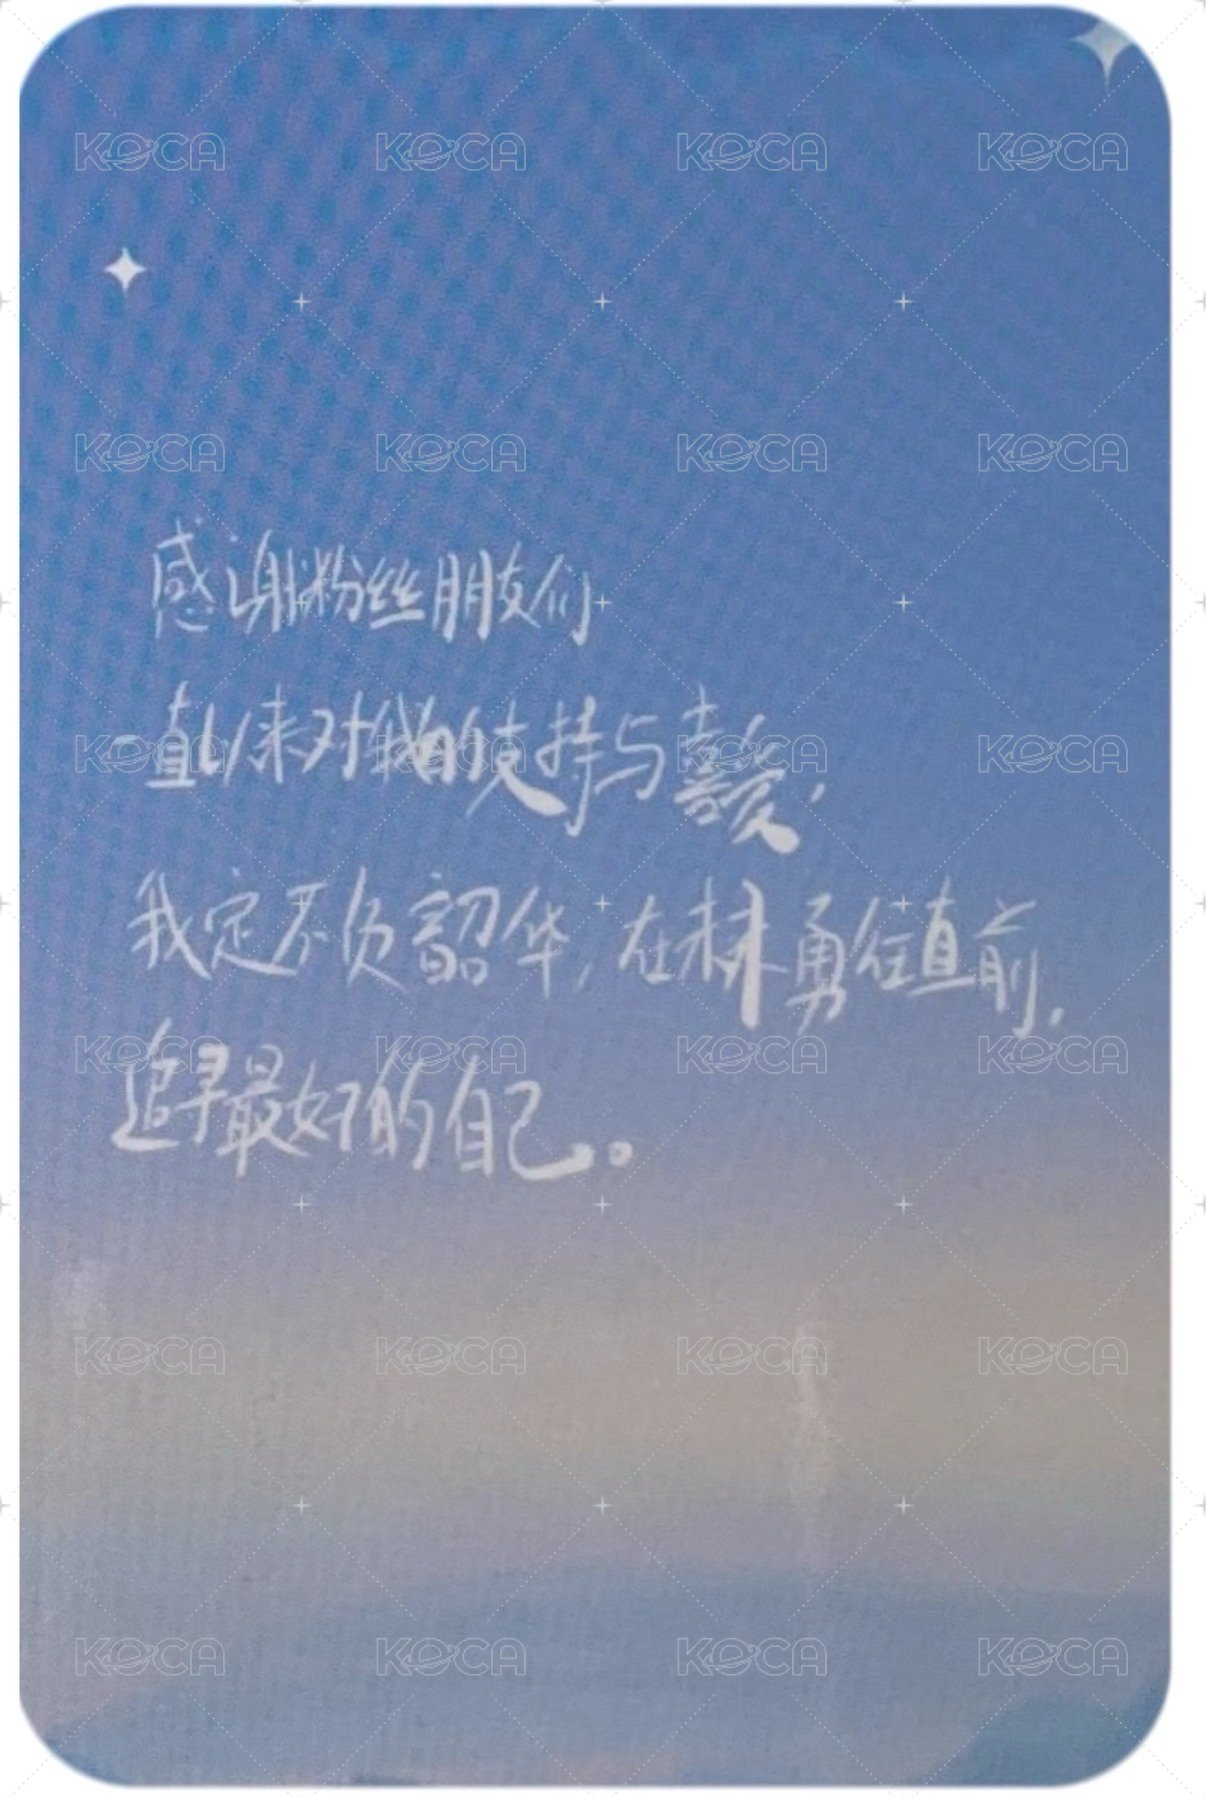 KOCA KOCA KOCA KOCA
KOCA KOCA KOCA KOCA
感谢粉丝朋友们
一直以来对我的支持与喜爱,
KOCA KOCA KOCA KOCA
我定不负韶华,在未来勇往直前,
追寻最好的自己。
KOCA KOCA KOCA KOCA
KOCA KOCA KOCA KOCA
KOCA KOCA KOCA KOCA